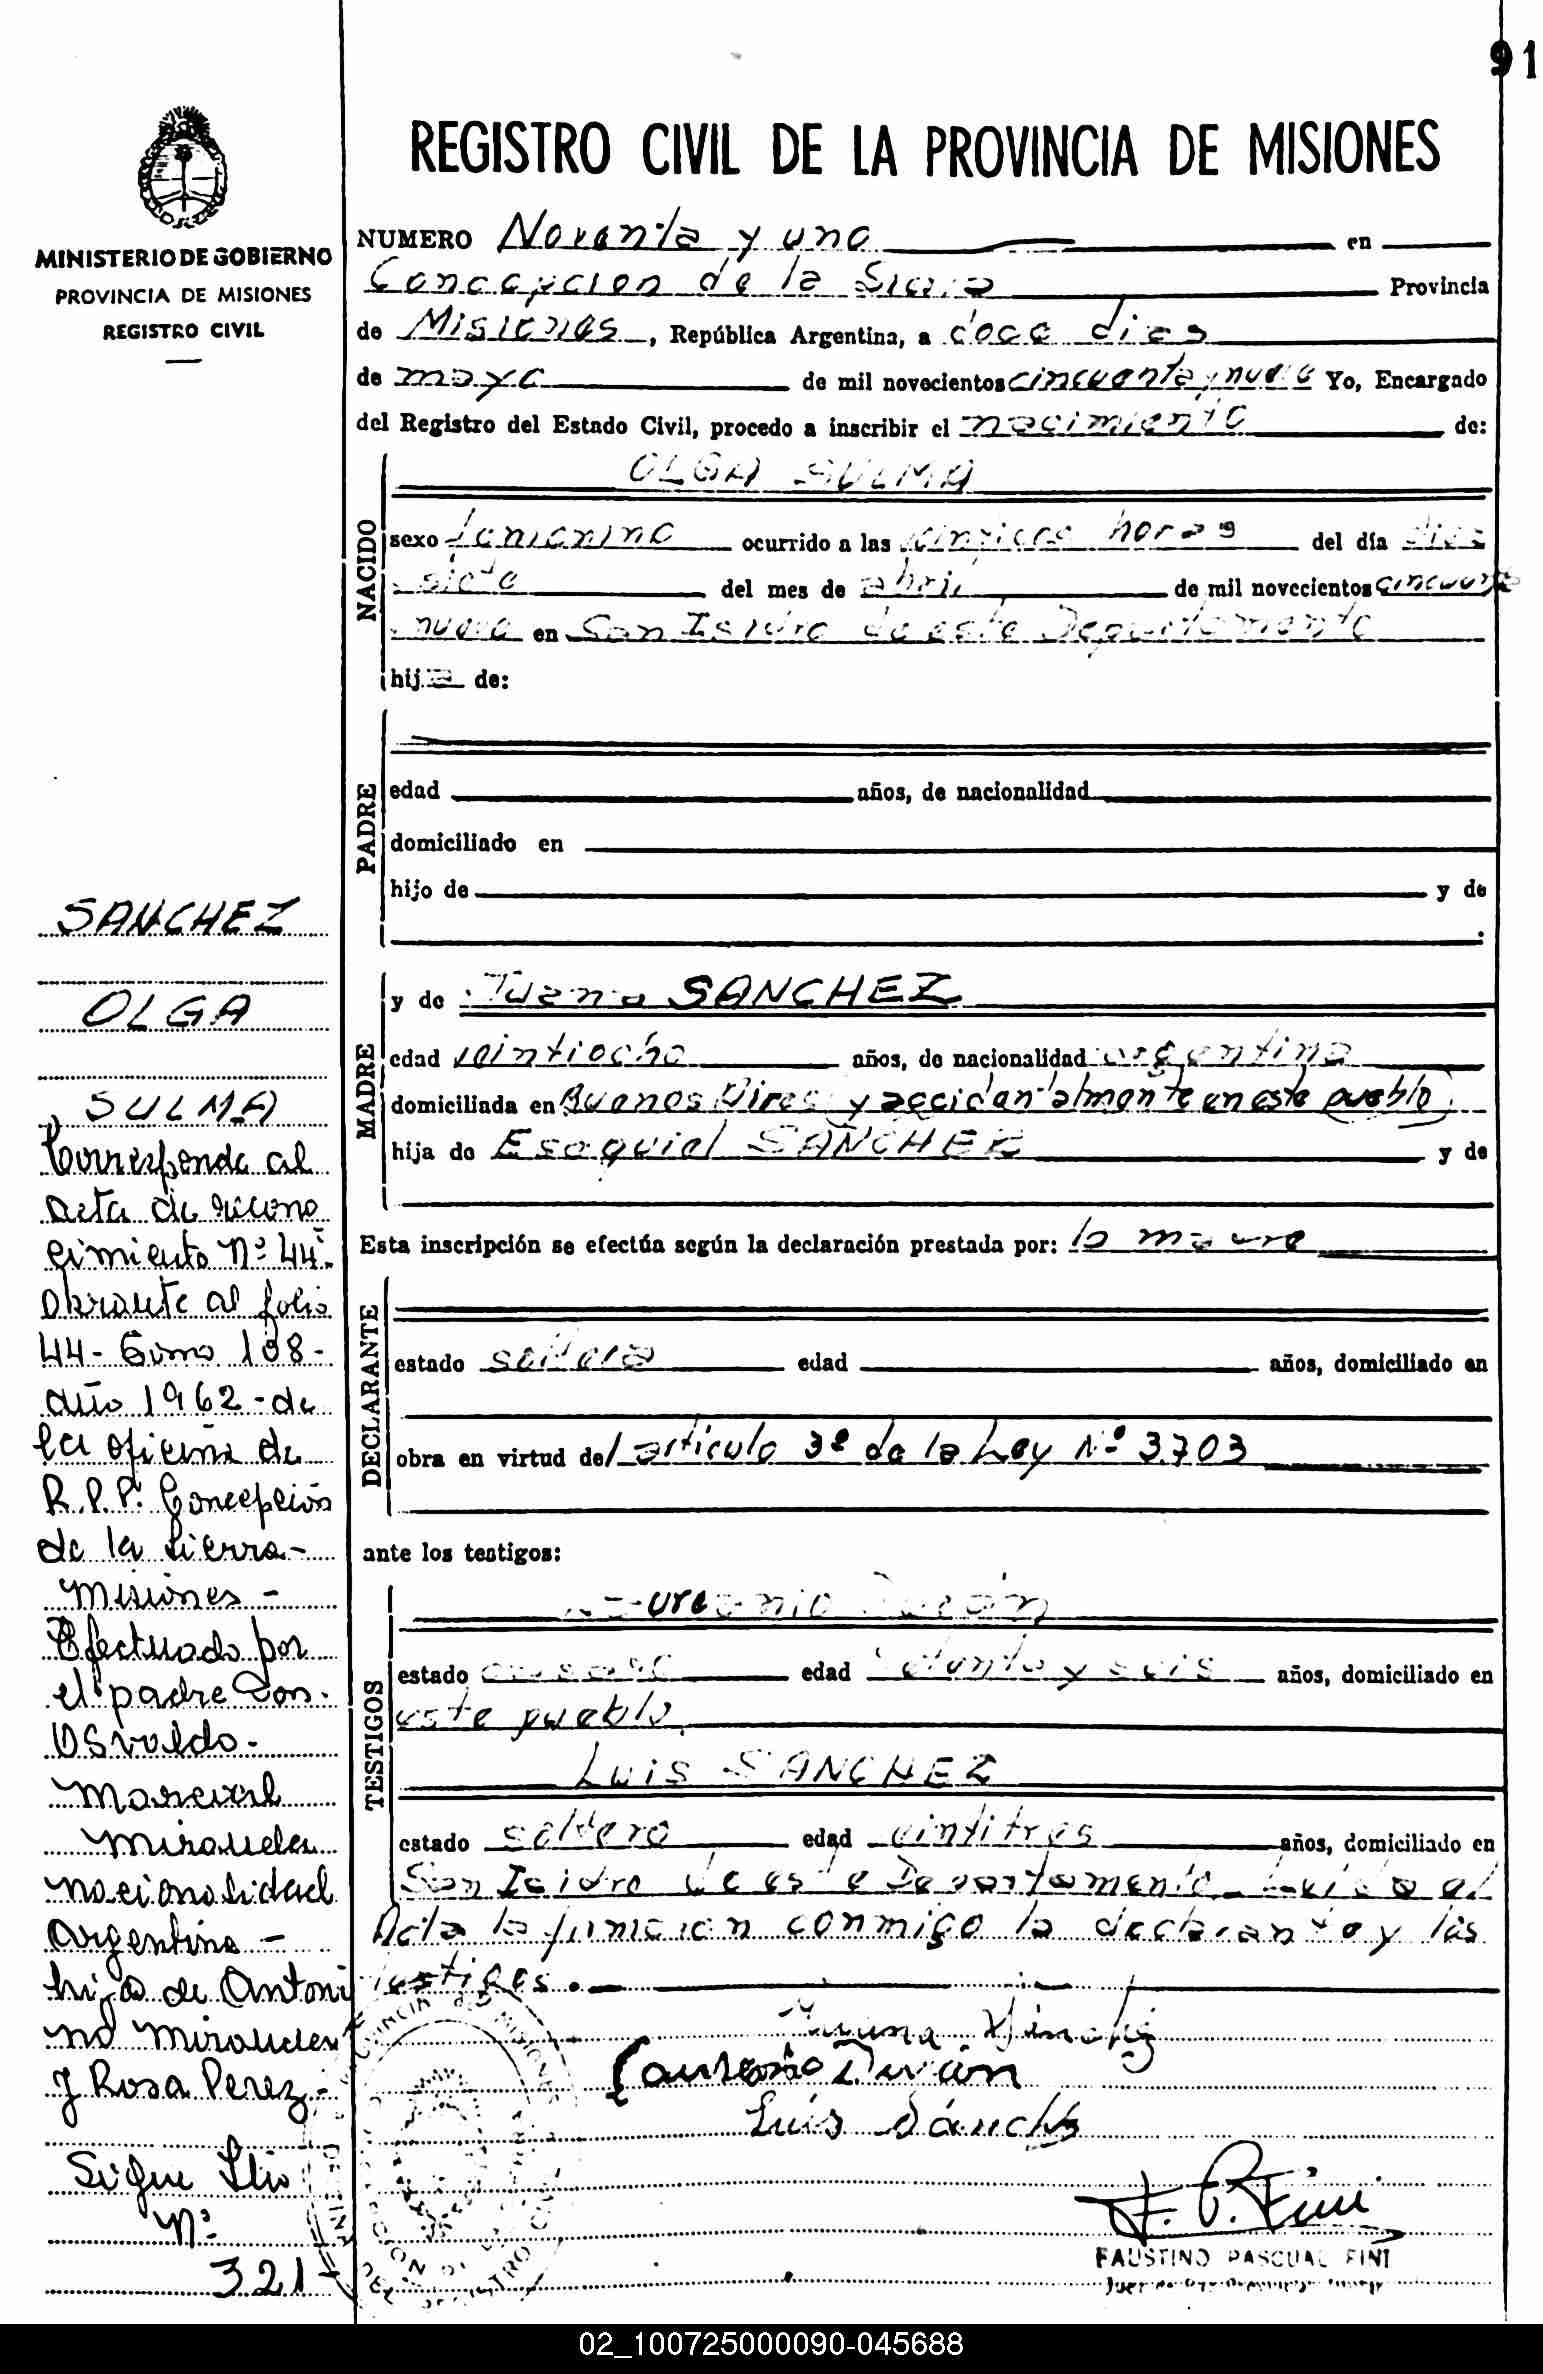 91
MINISTERIO DE GOBIERNO
PROVINCIA DE MISIONES
REGISTRO CIVIL
SANCHEZ
OLGA
SULMA
Corresponde al
acta de recono
cimiento Nº 44-
obrante al folio
44- Tomo 108-
año 1962-de
la oficina de
R.P.P. Concepción
de la Sierra-
Misiones-
Efectuado por
el padre Don-
Osvaldo-
Marcial
Miranda
nacionalidad
argentina-
hijo de Antoni
no Miranda
y Rosa Perez-
Sigue
Nº
321-
REGISTRO CIVIL DE LA PROVINCIA DE MISIONES
NUMERO Noventa y uno en
Concepcion de la Sierra Provincia
de Misiones, República Argentina, a doce dias
de mayo de mil novecientos cincuenta y nueve Yo, Encargado
del Registro del Estado Civil, procedo a inscribir el nacimiento de:
NACIDO
OLGA SULMA
sexo femenino ocurrido a las horas del día dies
siete del mes de abril de mil novecientos cincuenta
nueve en San Isidro de este Departamento
hija de:
PADRE
edad años, de nacionalidad
domiciliado en
hijo de y de
MADRE
y de Juana SANCHEZ
edad veintiocho años, de nacionalidad argentina
domiciliada en Buenos Aires y accidentalmente en este pueblo
hija de Esequiel SANCHEZ y de
Esta inscripción se efectúa según la declaración prestada por: la madre
DECLARANTE
estado soltera edad años, domiciliado en
obra en virtud del articulo 3º de la Ley Nº 3.703
ante los testigos:
TESTIGOS
Laureanio Durán
estado casado edad y seis años, domiciliado en
este pueblo
Luis SANCHEZ
estado soltero edad vintitres años, domiciliado en
San Isidro de este Departamento. Leida el
Acta la firmaron conmigo la declarante y los
testigos.
Juana Sánchez
Laureanio Durán
Luis Sánchez
F. P. Fini
FAUSTINO PASCUAL FINI
02_100725000090-045688